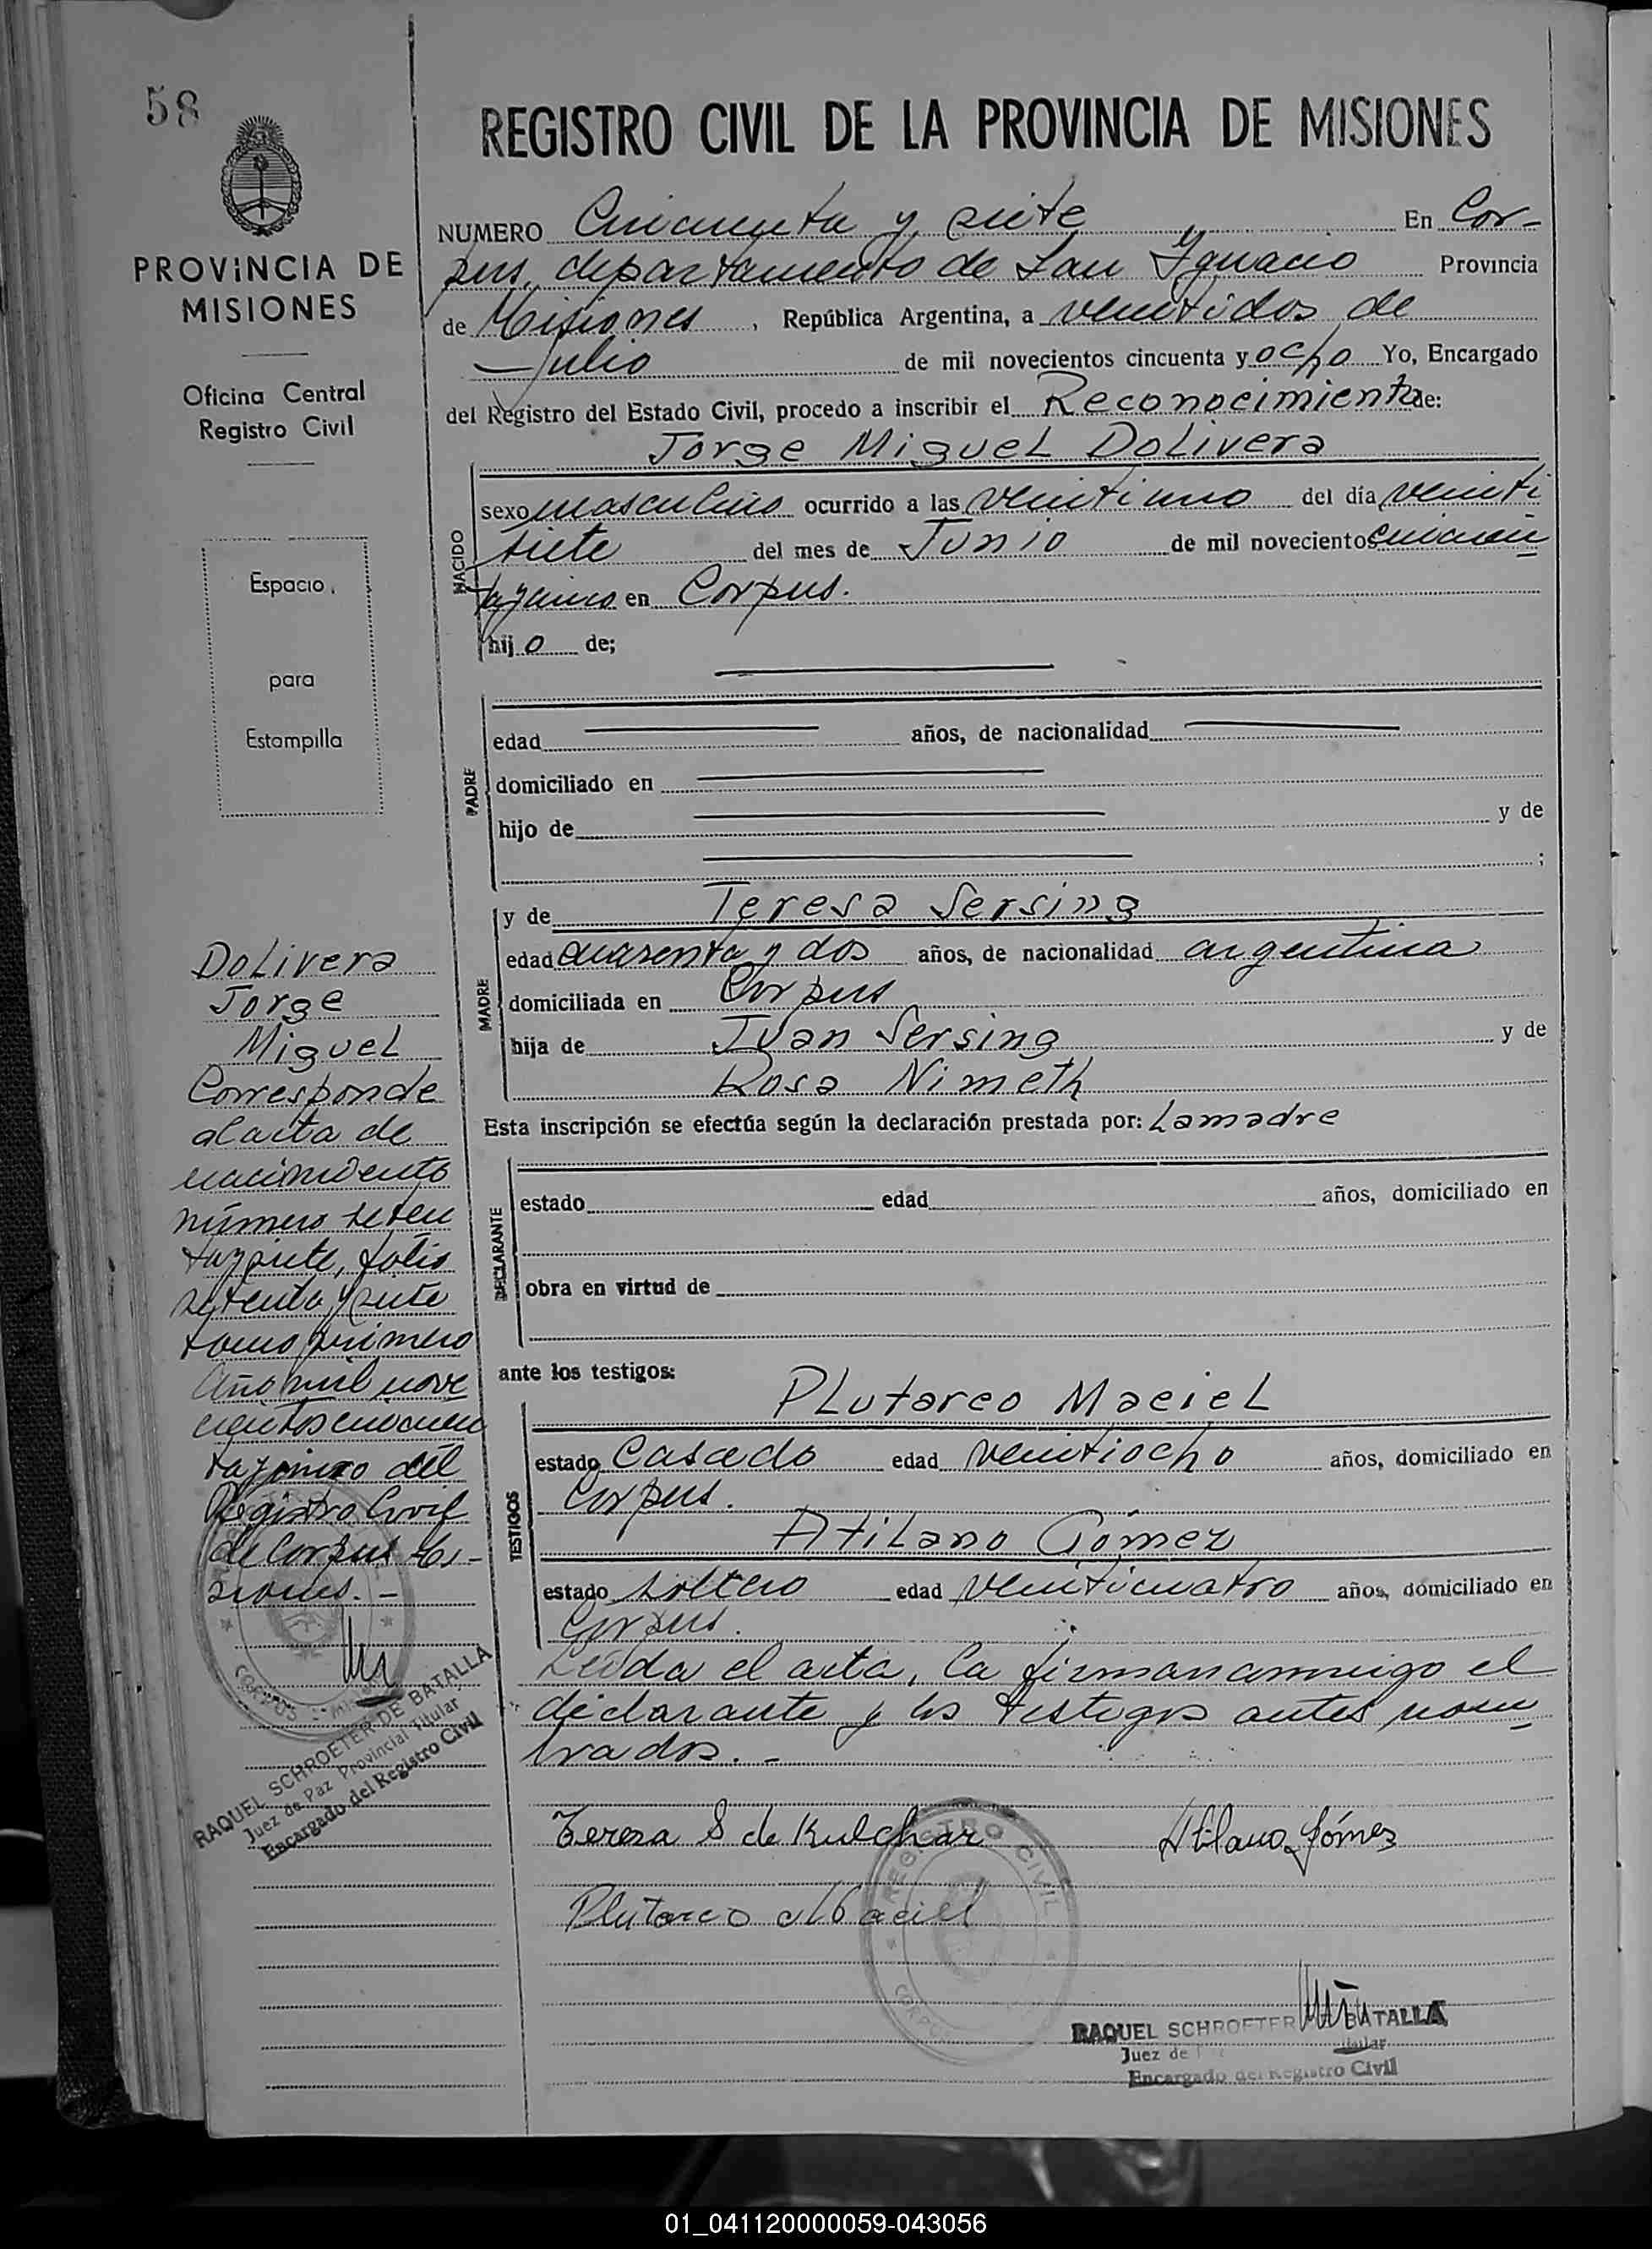 58
REGISTRO CIVIL DE LA PROVINCIA DE MISIONES
PROVINCIA DE
MISIONES
Oficina Central
Registro Civil
Espacio
para
Estampilla
NUMERO Cincuenta y siete En Cor-
pus, departamento de San Ignacio Provincia
de Misiones, República Argentina, a veintidos de
Julio de mil novecientos cincuenta y ocho Yo, Encargado
del Registro del Estado Civil, procedo a inscribir el Reconocimiento de:
Jorge Miguel Dolivera
NACIDO
sexo masculino ocurrido a las veintiuno del día veinti
siete del mes de Junio de mil novecientos cincuen
ta y cinco en Corpus.
hijo de;
PADRE
edad años, de nacionalidad
domiciliado en
hijo de y de
;
MADRE
y de Teresa Sersing
edad cuarenta y dos años, de nacionalidad argentina
domiciliada en Corpus
hija de Juan Sersing y de
Rosa Nimeth
Esta inscripción se efectúa según la declaración prestada por: La madre
DECLARANTE
estado edad años, domiciliado en
obra en virtud de
ante los testigos:
TESTIGOS
Plutarco Maciel
estado Casado edad veintiocho años, domiciliado en
Corpus.
Atilano Gómez
estado soltero edad veinticuatro años, domiciliado en
Corpus.
Leída el acta, la firman conmigo el
declarante y los testigos antes nom
brados.-
Teresa S de Kulchar Atilano Gómez
Plutarco Maciel
REGISTRO CIVIL
CORPUS
RAQUEL SCHROETER BATALLA
Juez de
Encargado del Registro Civil
Dolivera
Jorge
Miguel
Corresponde
al acta de
nacimiento
número seten
ta y siete, folio
setenta y siete
tomo primero
Año mil nove
cientos cincuen
ta y cinco del
Registro Civil
de Corpus Mi-
siones.-
CORPUS - MISIONES
RAQUEL SCHROETER DE BATALLA
Juez de Paz Provincial Titular
Encargado del Registro Civil
01_041120000059-043056